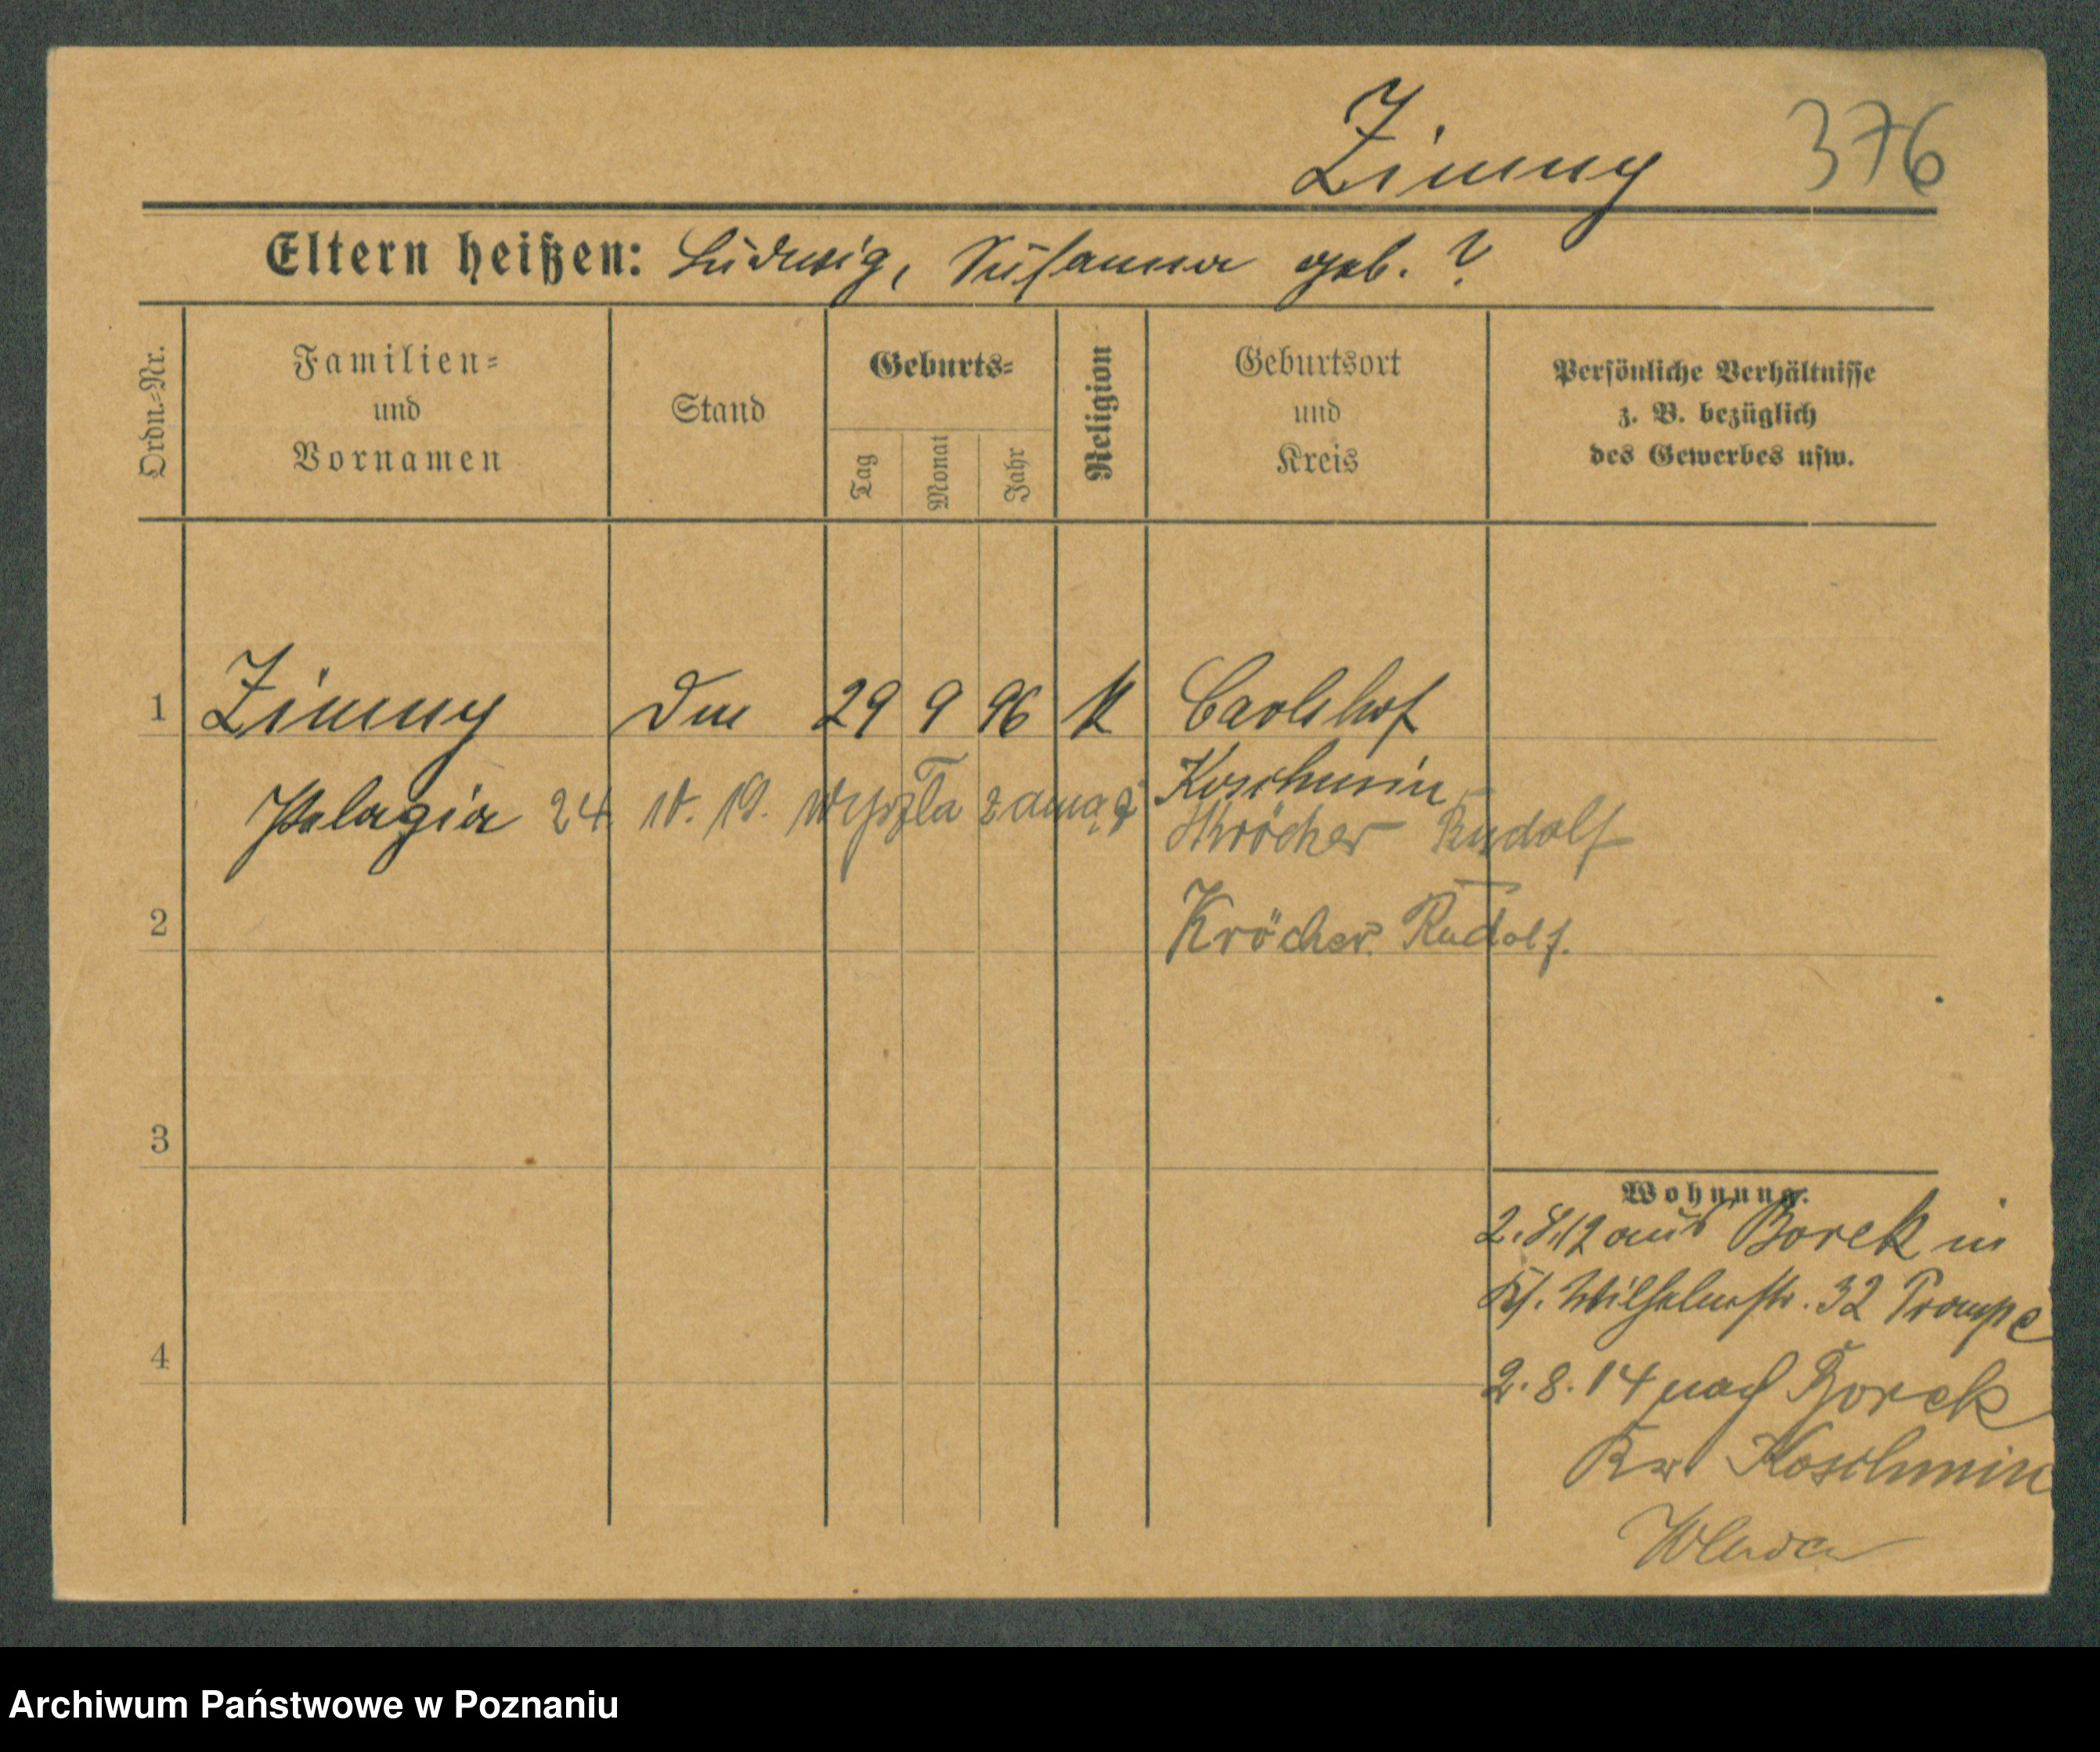 Zimny 376
Eltern heißen: Ludwig, Susanna geb. ?
Ordn.-Nr.
Familien-
und
Vornamen
Stand
Geburts-
Tag
Monat
Jahr
Religion
Geburtsort
und
Kreis
Persönliche Verhältnisse
z. B. bezüglich
des Gewerbes usw.
1 Zimny 29 9 96 K Carlshof
Koschmin
Pelagia 24. 10. 19. wyszła zamąż Kröcher Rudolf
2 Kröcher Rudolf.
3
Wohnung:
2.8.12 aus Borek in
Wilhelmstr. 32 Prompe
4
2. 8. 14 nach Borek
Kr. Koschmin
Archiwum Państwowe w Poznaniu